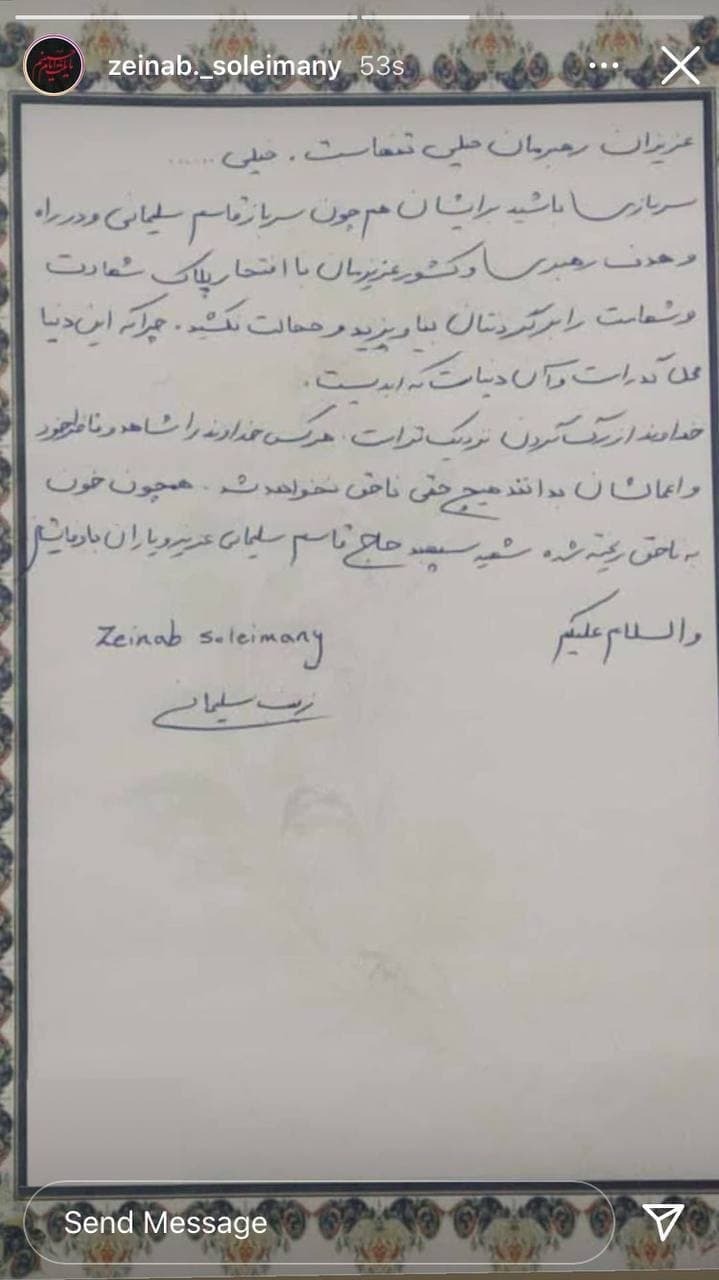 zeinab._soleimany 53s
عزیزان رهبرمان خیلی تنهاست . خیلی ......
سربازی باشید برایشان هم چون سرباز قاسم سلیمانی و در راه
و هدف رهبری و کشور عزیزمان با افتخار پلاک شهادت
و شهامت را بر گردنتان بیاویزید و خجالت نکشید . چرا که این دنیا
محل گذر است و آن دنیاست که ابدیست .
خداوند از رگ گردن نزدیک تر است . هرکس خداوند را شاهد و ناظر خود
و اعمالشان بدانند هیچ حقی ناحق نخواهد شد . همچون خون
به ناحق ریخته شده شهید سپهبد حاج قاسم سلیمانی عزیز و یاران باوفایش
والسلام علیکم
Zeinab soleimany
زینب سلیمانی
Send Message